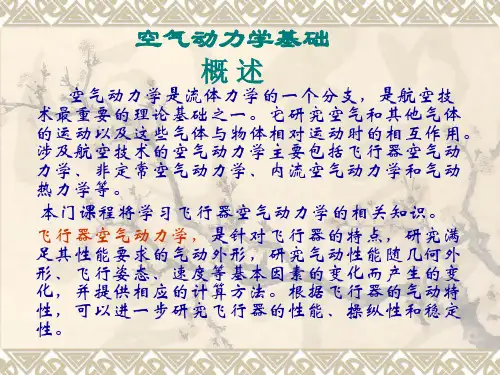 空气动力学基础
概 述
空气动力学是流体力学的一个分支，是航空技
术最重要的理论基础之一。它研究空气和其他气体
的运动以及这些气体与物体相对运动时的相互作用。
涉及航空技术的空气动力学主要包括飞行器空气动
力学、非定常空气动力学、内流空气动力学和气动
热力学等。
本门课程将学习飞行器空气动力学的相关知识。
飞行器空气动力学，是针对飞行器的特点，研究满
足其性能要求的气动外形，研究气动性能随几何外
形、飞行姿态、速度等基本因素的变化而产生的变
化，并提供相应的计算方法。根据飞行器的气动特
性，可以进一步研究飞行器的性能、操纵性和稳定
性。